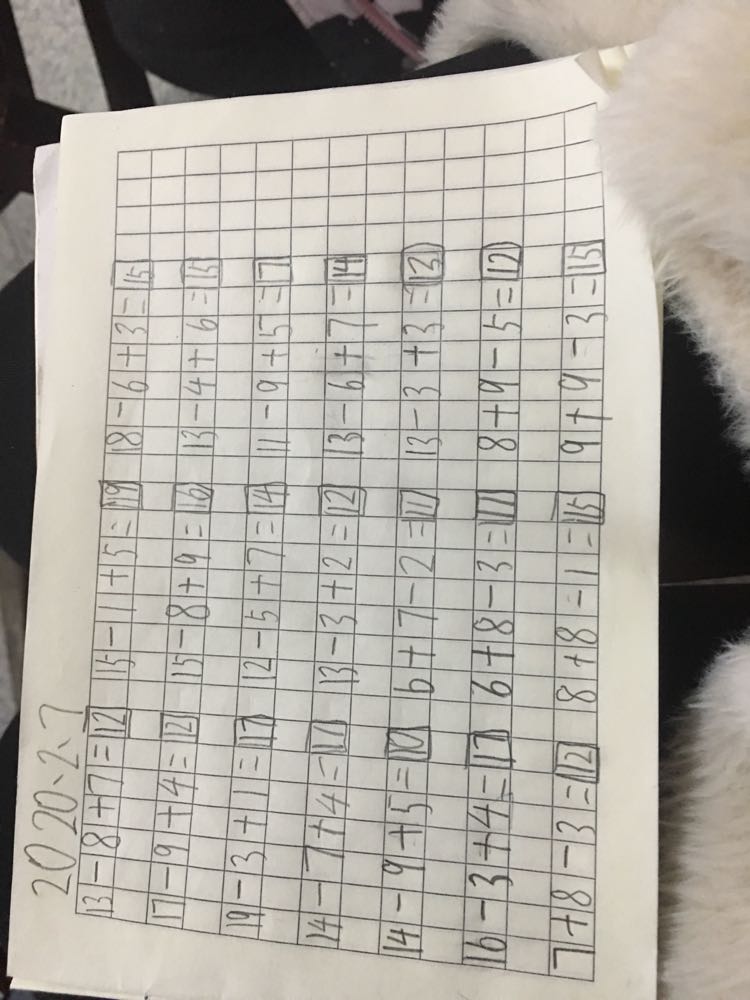 2020、2、7
13-8+7=12 15-1+5=19 18-6+3=15
17-9+4=12 15-8+9=16 13-4+6=15
19-3+1=17 12-5+7=14 11-9+5=7
14-7+4=11 13-3+2=12 13-6+7=14
14-9+5=10 6+7-2=11 13-3+3=13
16-3+4=17 6+8-3=11 8+9-5=12
7+8-3=12 8+8-1=15 9+9-3=15